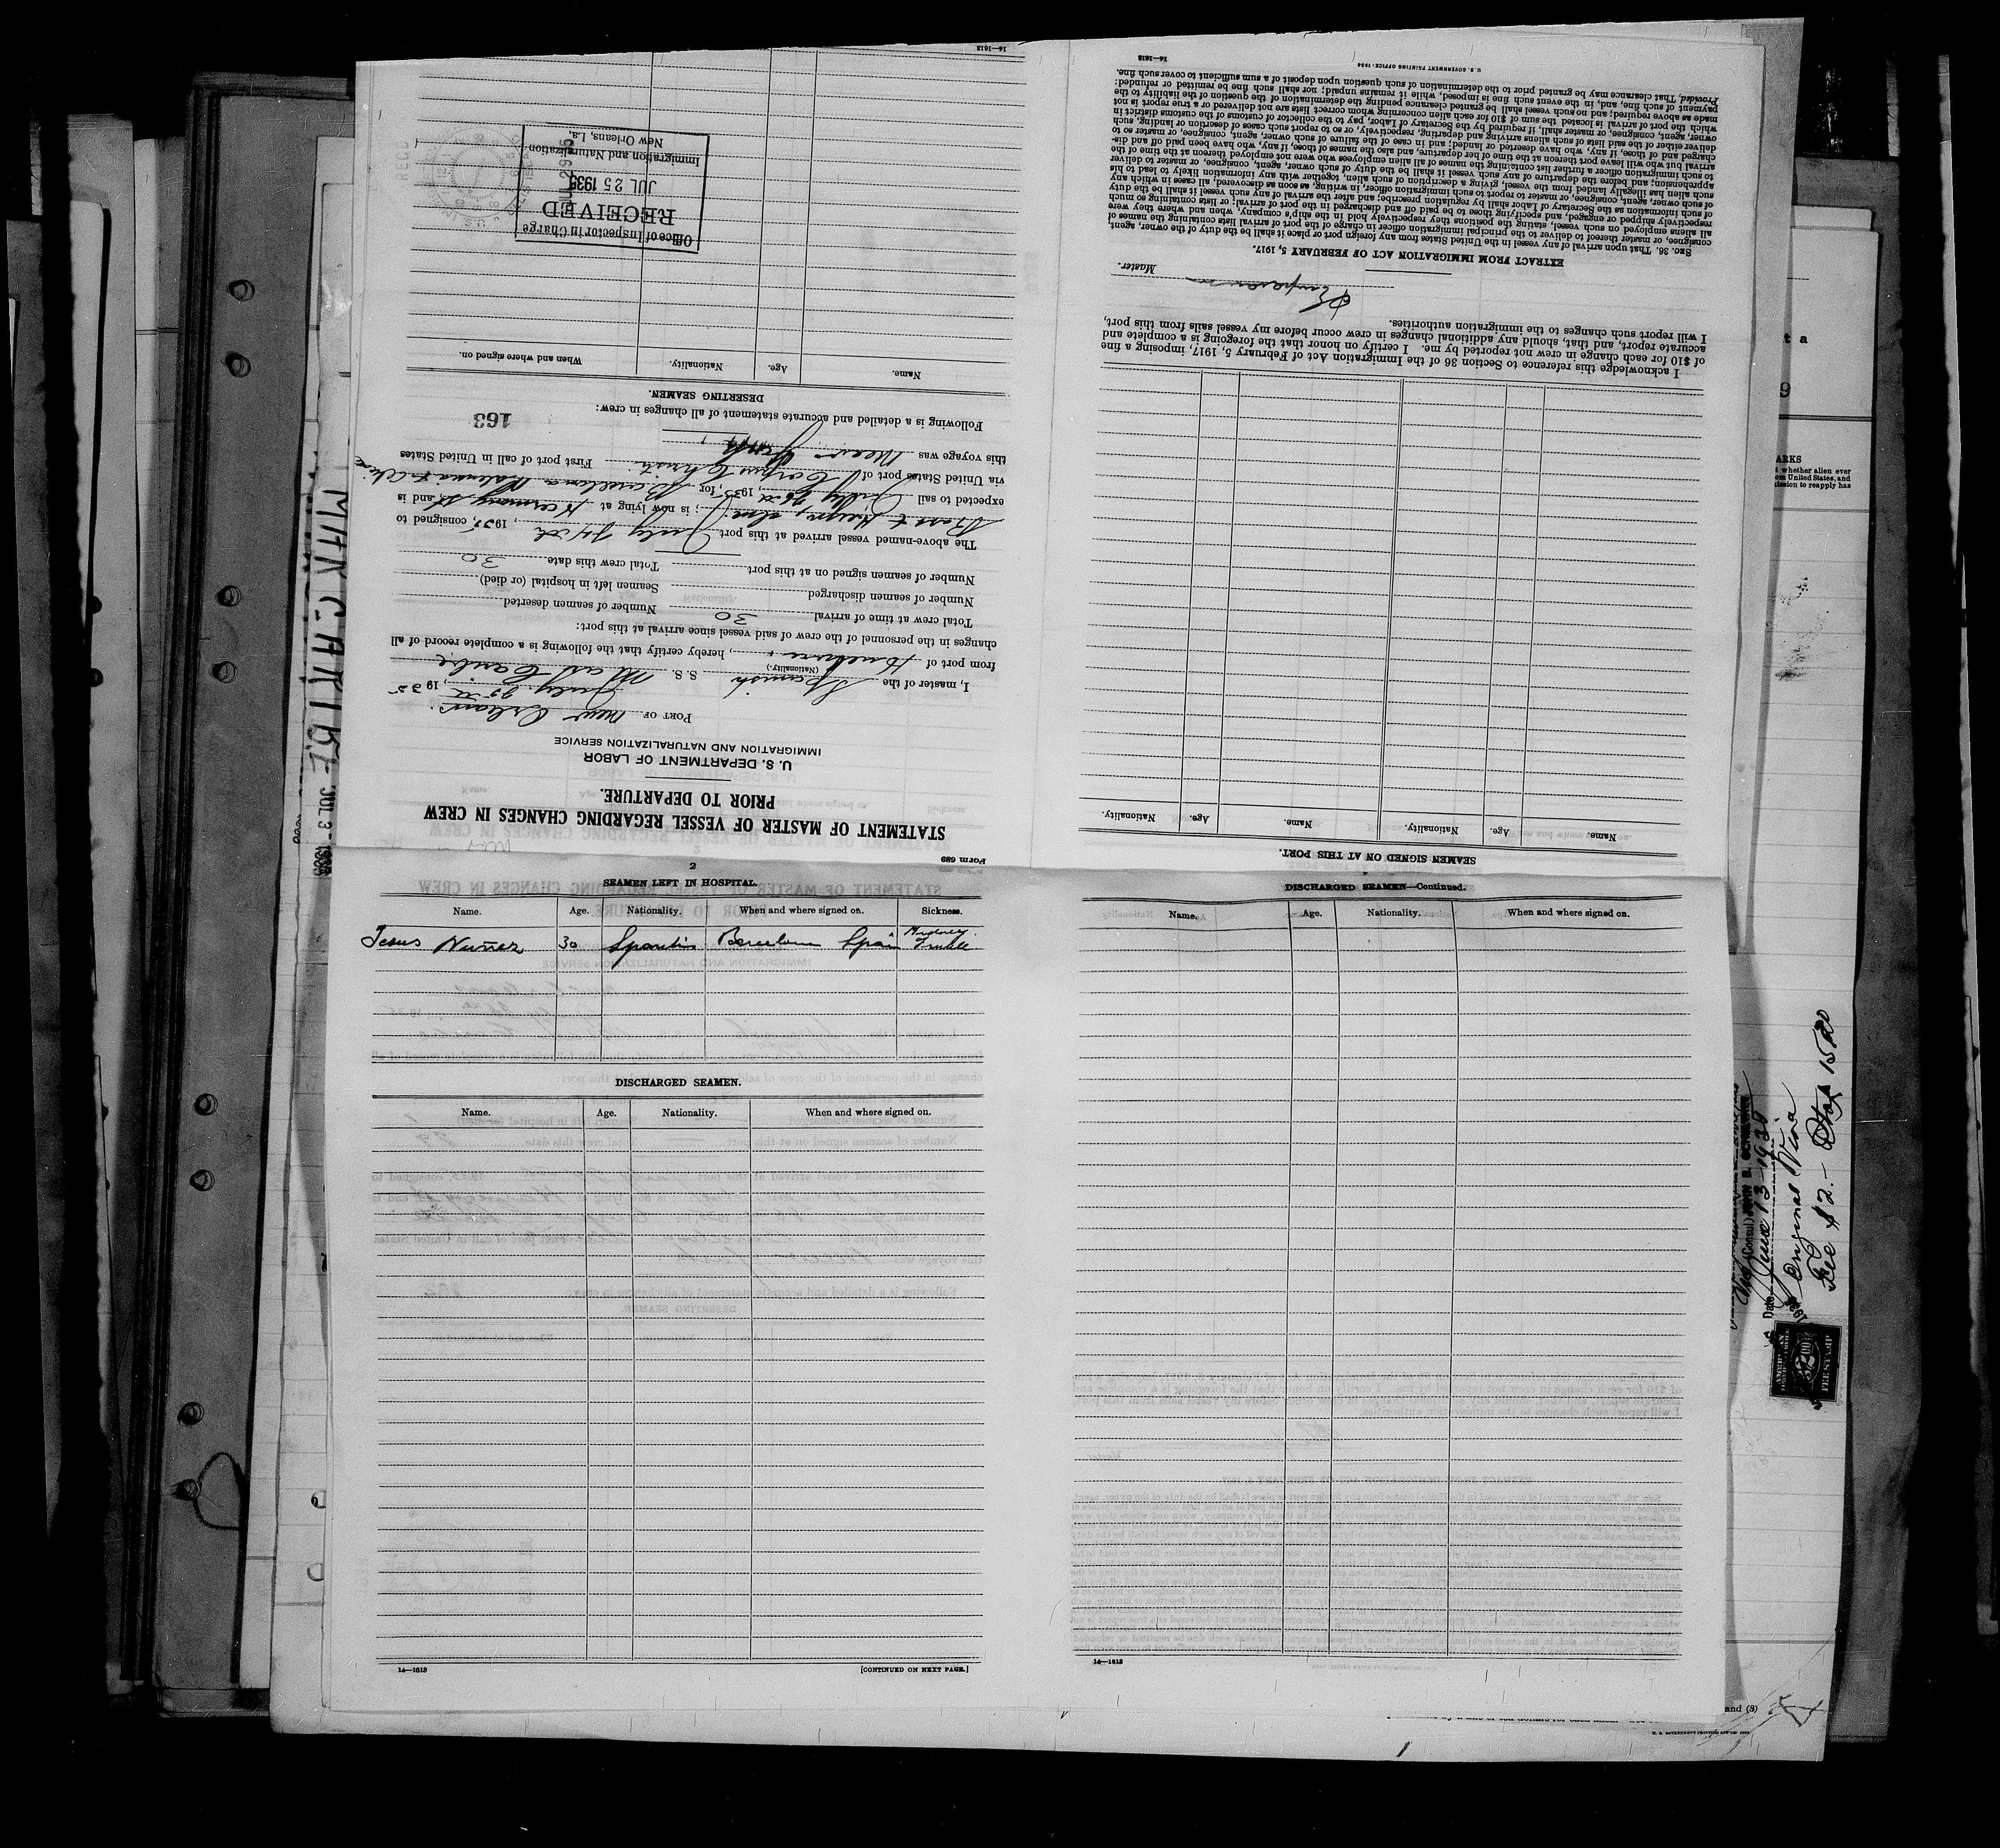 Form 689
STATEMENT OF MASTER OF VESSEL REGARDING CHANGES IN CREW
PRIOR TO DEPARTURE.
U. S. DEPARTMENT OF LABOR
IMMIGRATION AND NATURALIZATION SERVICE
PORT OF New Orleans
July 25, 1935
I, master of the Spanish S. S. Mar Caribe
(Nationality.)
from port of , hereby certify that the following is a complete record of all
changes in the personnel of the crew of said vessel since arrival at this port:
Total crew at time of arrival 30 Number of seamen deserted
Number of seamen discharged Seamen left in hospital (or died)
Number of seamen signed on at this port Total crew this date 30
The above-named vessel arrived at this port July , 1935, consigned to
; is now lying at Harmony St, and is
expected to sail July , 1935, for Barcelona
via United States port of Corpus Christi First port of call in United States
this voyage was New York
Following is a detailed and accurate statement of all changes in crew:
163
DESERTING SEAMEN.
Name. Age. Nationality. When and where signed on.
Office of Inspector in Charge
RECEIVED
JUL 25 1935
Immigration and Naturalization
New Orleans, La.
14—1613
SEAMEN SIGNED ON AT THIS PORT.
Name. Age. Nationality. Name. Age. Nationality.
I acknowledge this reference to Section 36 of the Immigration Act of February 5, 1917, imposing a fine
of $10 for each change in crew not reported by me. I certify on honor that the foregoing is a complete and
accurate report, and that, should any additional changes in crew occur before my vessel sails from this port,
I will report such changes to the immigration authorities.
Master.
EXTRACT FROM IMMIGRATION ACT OF FEBRUARY 5, 1917.
SEC. 36. That upon arrival of any vessel in the United States from any foreign port or place it shall be the duty of the owner, agent
consignee, or master thereof to deliver to the principal immigration officer in charge of the port of arrival lists containing the names of
all aliens employed on such vessel, stating the positions they respectively hold in the ship's company, when and where they were
respectively shipped or engaged, and specifying those to be paid off and discharged in the port of arrival; or lists containing so much
of such information as the Secretary of Labor shall by regulation prescribe; and after the arrival of any such vessel it shall be the duty
of such owner, agent, consignee, or master to report to such immigration officer, in writing, as soon as discovered, all cases in which any
such alien has illegally landed from the vessel, giving a description of such alien, together with any information likely to lead to his
apprehension; and before the departure of any such vessel it shall be the duty of such owner, agent, consignee, or master to deliver
to such immigration officer a further list containing the names of all alien employees who were not employed thereon at the time of the
arrival but who will leave port thereon at the time of her departure, and also the names of those, if any, who have been paid off and dis-
charged and of those, if any, who have deserted or landed; and in case of the failure of such owner, agent, consignee, or master so to
deliver either of the said lists of such aliens arriving and departing, respectively, or so to report such cases of desertion or landing, such
owner, agent, consignee, or master shall, if required by the Secretary of Labor, pay to the collector of customs of the customs district in
which the port of arrival is located the sum of $10 for each alien concerning whom correct lists are not delivered or a true report is not
made as above required; and no such vessel shall be granted clearance pending the determination of the question of the liability to the
payment of such fine, and, in the event such fine is imposed, while it remains unpaid; nor shall such fine be remitted or refunded:
Provided, That clearance may be granted prior to the determination of such question upon deposit of a sum sufficient to cover such fine.
U. S. GOVERNMENT PRINTING OFFICE: 1934
14—1613
2
SEAMEN LEFT IN HOSPITAL.
Name. Age. Nationality. When and where signed on. Sickness.
Jesus Nuñez 30 Spanish Barcelona Spain
DISCHARGED SEAMEN.
Name. Age. Nationality. When and where signed on.
14—1613 [CONTINUED ON NEXT PAGE.]
DISCHARGED SEAMEN—Continued.
Name. Age. Nationality. When and where signed on.
14—1613
MAR CARIBE JUL 3 - 1935
ARKS
whether alien ever
United States, and
mission to reapply has
Original Visa
Fee $2.—
FEE STAMP
and (3)